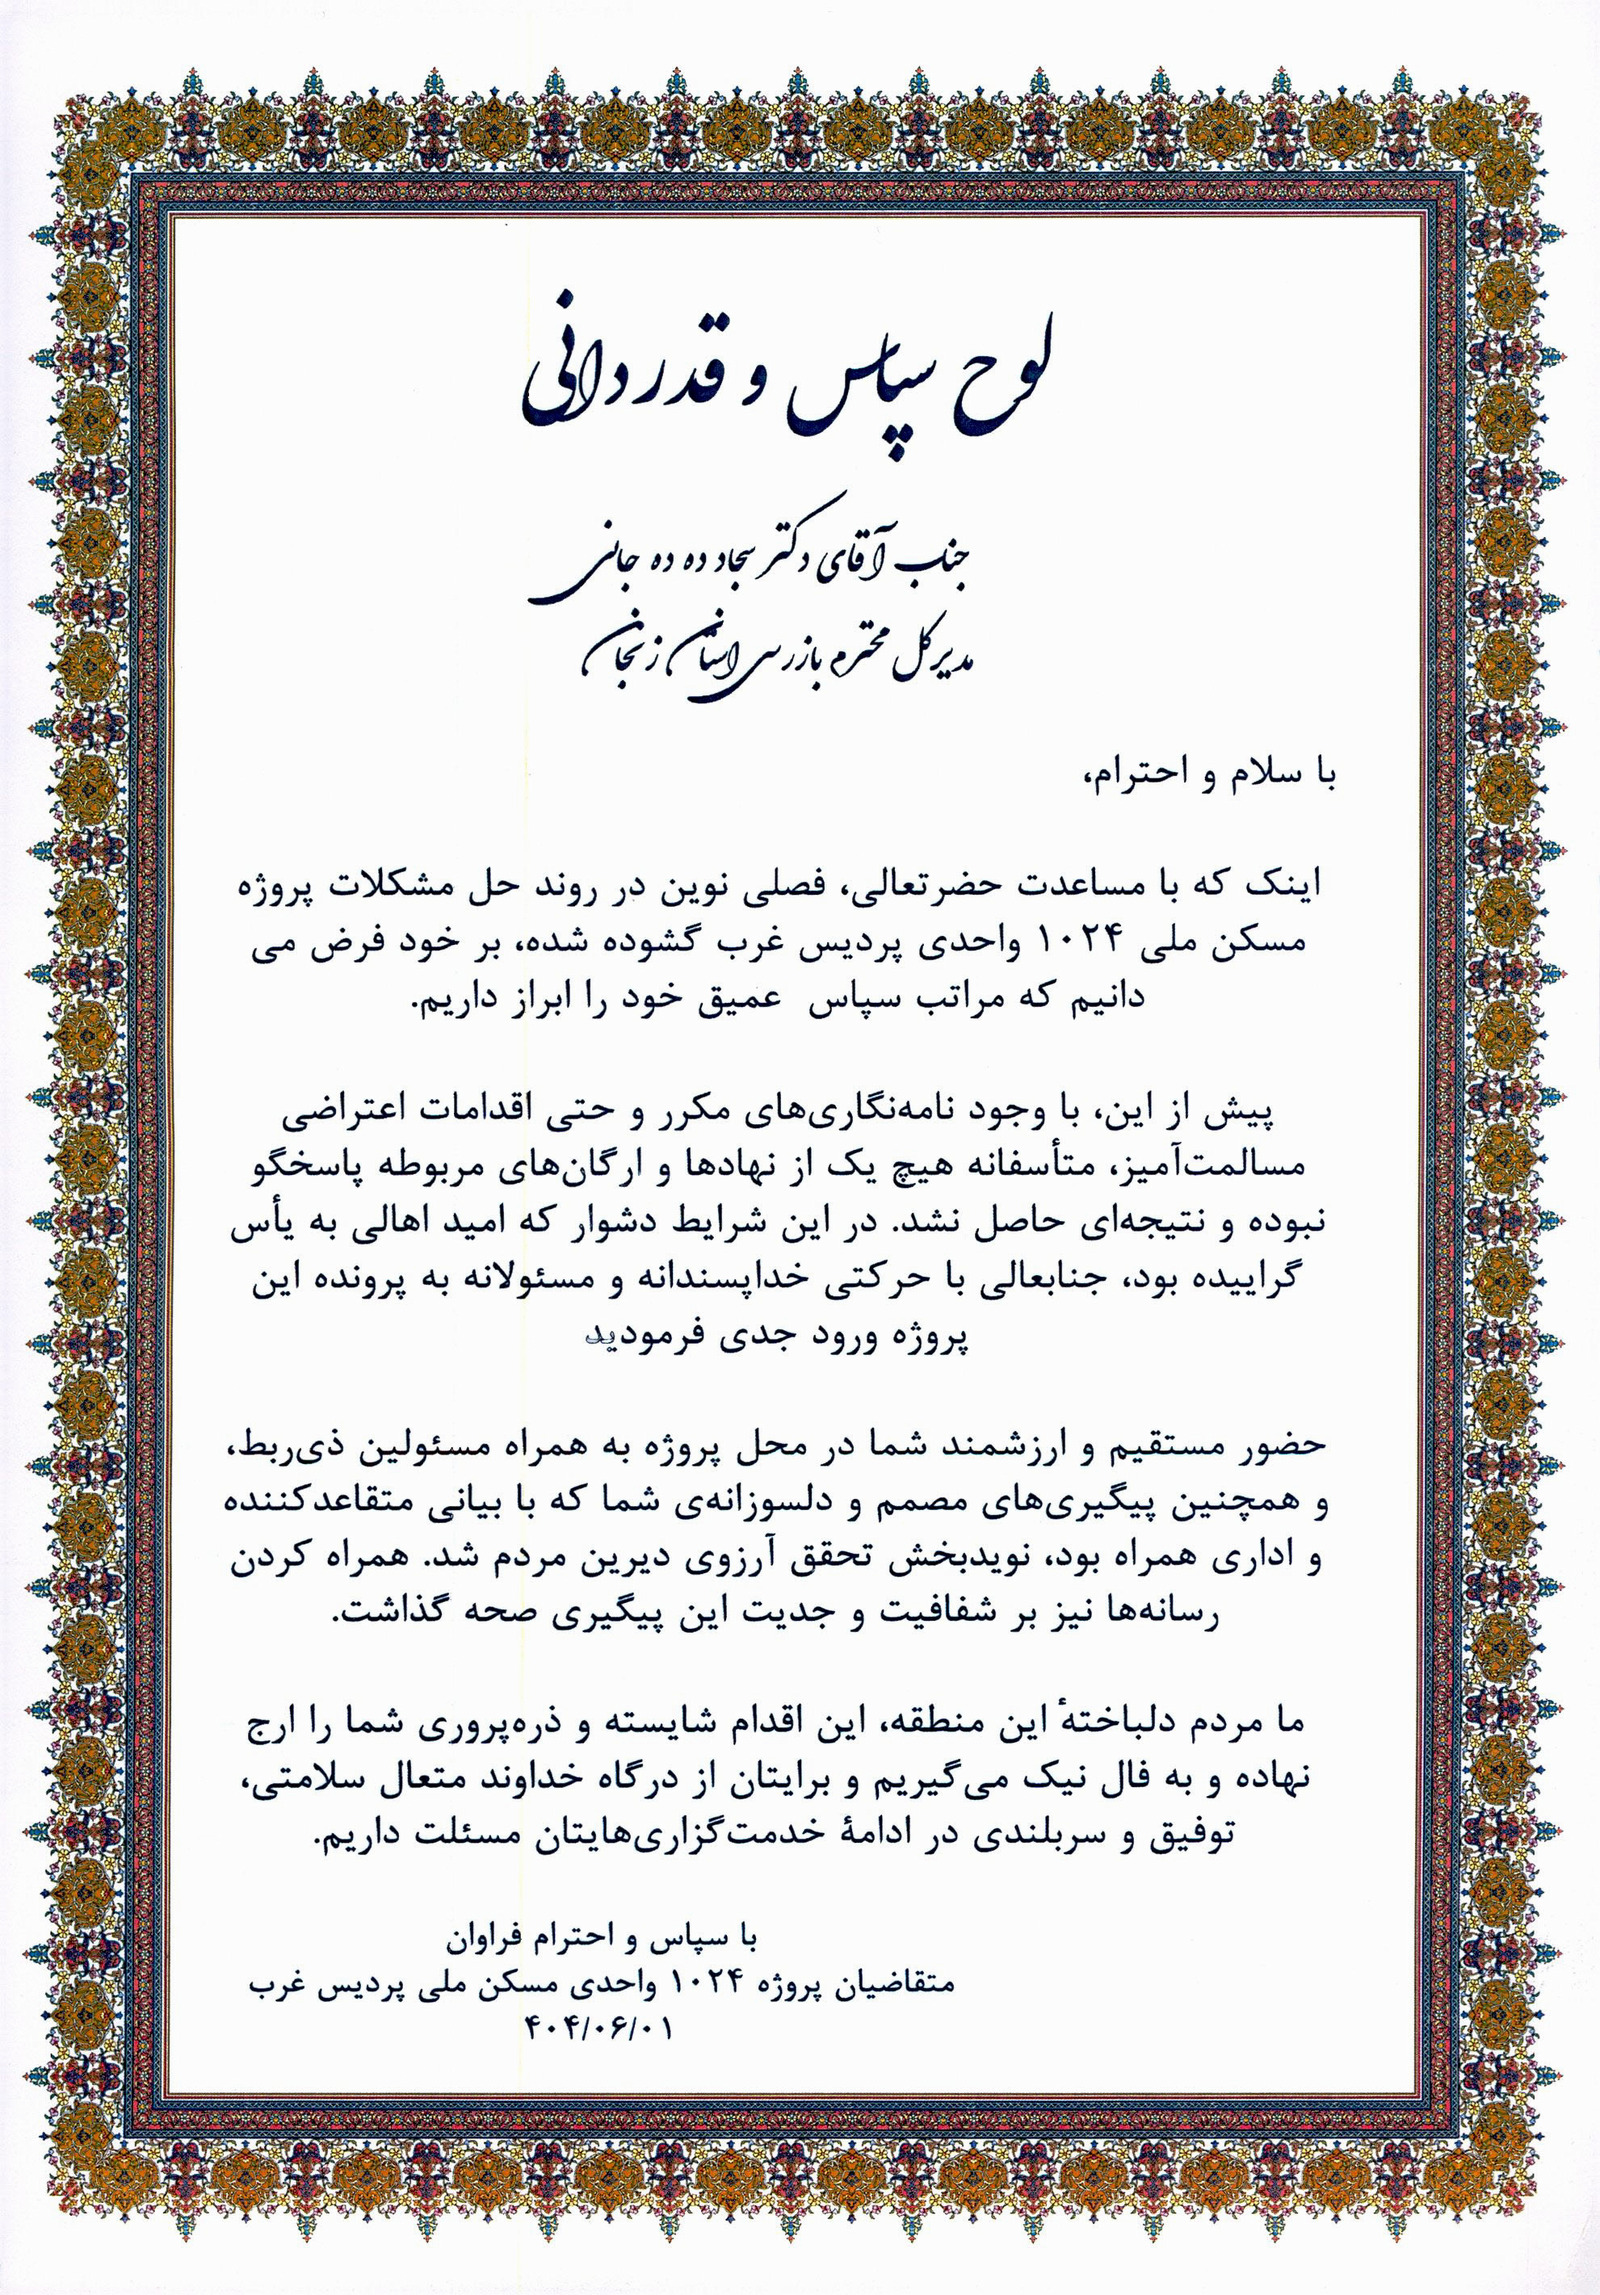 لوح سپاس و قدردانی
جناب آقای دکتر سجاد ده ده جانی
مدیرکل محترم بازرسی استان زنجان
با سلام و احترام،
اینک که با مساعدت حضرتعالی، فصلی نوین در روند حل مشکلات پروژه
مسکن ملی ۱۰۲۴ واحدی پردیس غرب گشوده شده، بر خود فرض می
دانیم که مراتب سپاس عمیق خود را ابراز داریم.
پیش از این، با وجود نامه‌نگاری‌های مکرر و حتی اقدامات اعتراضی
مسالمت‌آمیز، متأسفانه هیچ یک از نهادها و ارگان‌های مربوطه پاسخگو
نبوده و نتیجه‌ای حاصل نشد. در این شرایط دشوار که امید اهالی به یأس
گراییده بود، جنابعالی با حرکتی خداپسندانه و مسئولانه به پرونده این
پروژه ورود جدی فرمودید
حضور مستقیم و ارزشمند شما در محل پروژه به همراه مسئولین ذی‌ربط،
و همچنین پیگیری‌های مصمم و دلسوزانه‌ی شما که با بیانی متقاعدکننده
و اداری همراه بود، نویدبخش تحقق آرزوی دیرین مردم شد. همراه کردن
رسانه‌ها نیز بر شفافیت و جدیت این پیگیری صحه گذاشت.
ما مردم دلباختهٔ این منطقه، این اقدام شایسته و ذره‌پروری شما را ارج
نهاده و به فال نیک می‌گیریم و برایتان از درگاه خداوند متعال سلامتی،
توفیق و سربلندی در ادامهٔ خدمت‌گزاری‌هایتان مسئلت داریم.
با سپاس و احترام فراوان
متقاضیان پروژه ۱۰۲۴ واحدی مسکن ملی پردیس غرب
۴۰۴/۰۶/۰۱